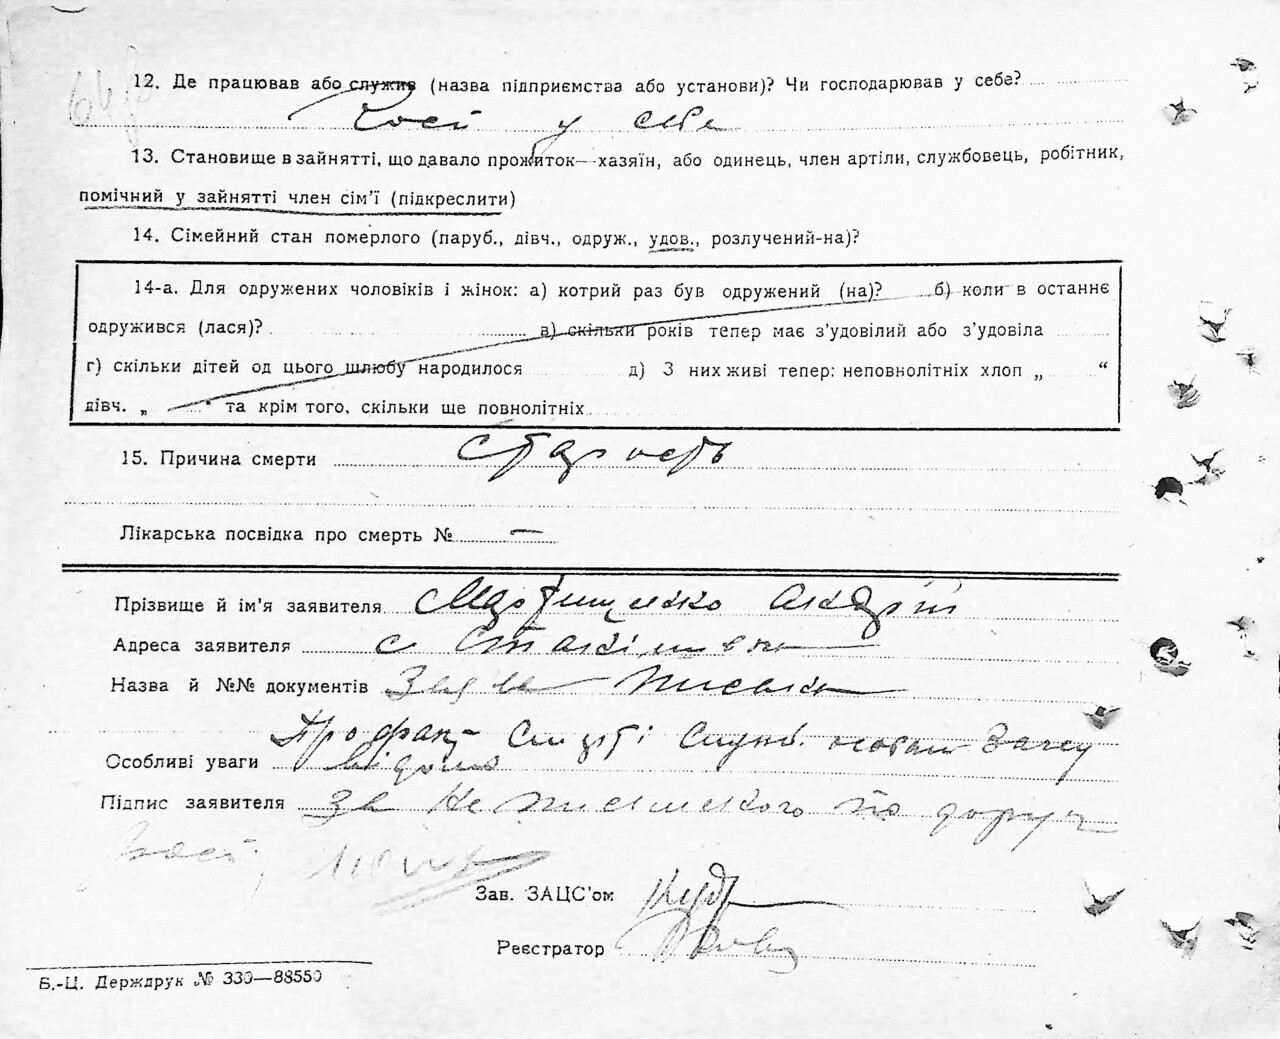 12. Де працював або служив (назва підприємства або установи)? Чи господарював у себе?
у себе
13. Становище в зайнятті, що давало прожиток—хазяїн, або одинець, член артіли, службовець, робітник,
помічний у зайнятті член сім'ї (підкреслити)
14. Сімейний стан померлого (паруб., дівч., одруж., удов., розлучений-на)?
14-а. Для одружених чоловіків і жінок: а) котрий раз був одружений (на)? б) коли в останнє
одружився (лася)? в) скільки років тепер має з'удовілий або з'удовіла
г) скільки дітей од цього шлюбу народилося д) З них живі тепер: неповнолітніх хлоп „ “
дівч. „ “ та крім того, скільки ще повнолітніх
15. Причина смерти старость
Лікарська посвідка про смерть № —
Прізвище й ім'я заявителя Андрій
Адреса заявителя с
Назва й №№ документів
Про факт смерті служб. особам Загсу
Особливі уваги відомо
Підпис заявителя За неписьменого по доруч
Зав. ЗАЦС'ом
Реєстратор
Б.-Ц. Держдрук № 330—88550